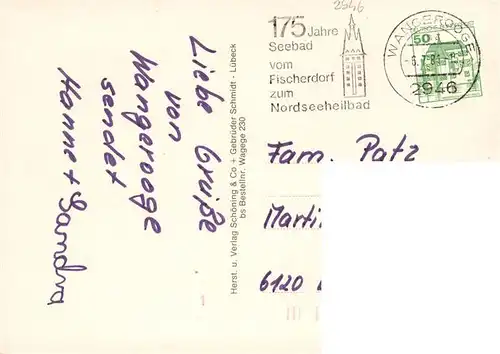 2946
175 Jahre
Seebad
vom
Fischerdorf
zum
Nordseeheilbad
WANGEROOGE
50
2946
Liebe Grüße
von
Wangerooge
sendet
Hanne + Sandra
Herst. u. Verlag Schöning & Co + Gebrüder Schmidt - Lübeck
bs Bestellnr. Wagege 230
Fam. Patz
Marti
6120
1